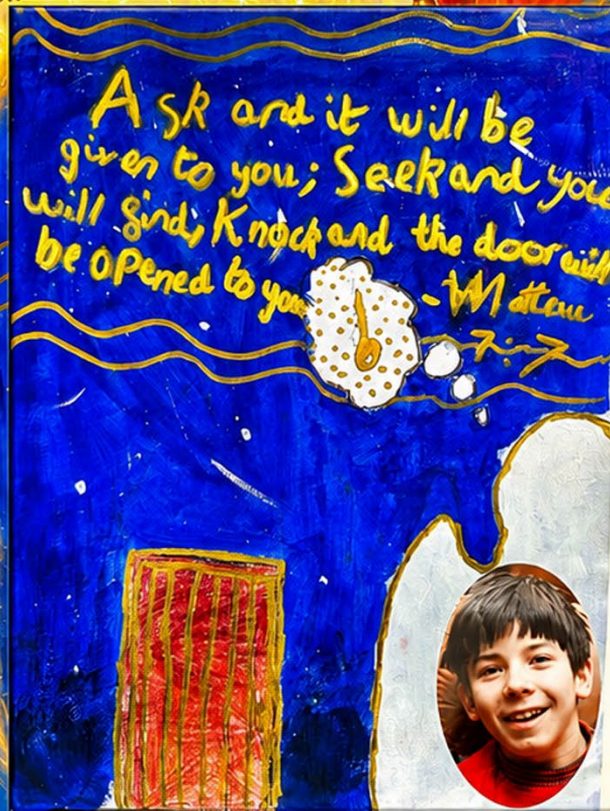 Ask and it will be
given to you; Seek and you
will find, Knock and the door will
be opened to you
- Matteu
7:7